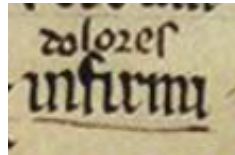 dolores
infirmi